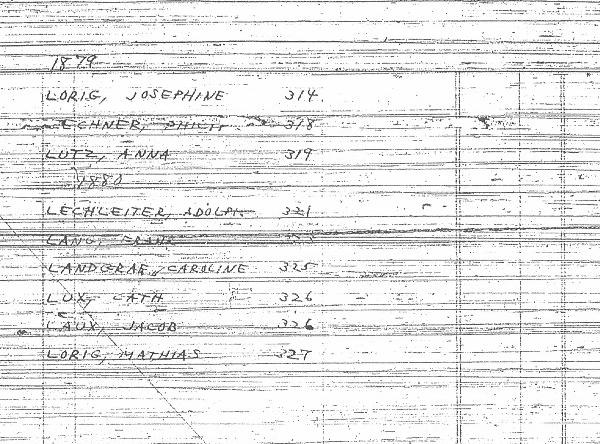 1879
LORIG, JOSEPHINE 314
LECHNER, PHILIP 318
LUTZ, ANNA 319
1880
LECHLEITER, ADOLPH 321
LANG, FRANK
LANDGRAF, CAROLINE 325
LUX, CATH 326
LAUX, JACOB 326
LORIG, MATHIAS 327